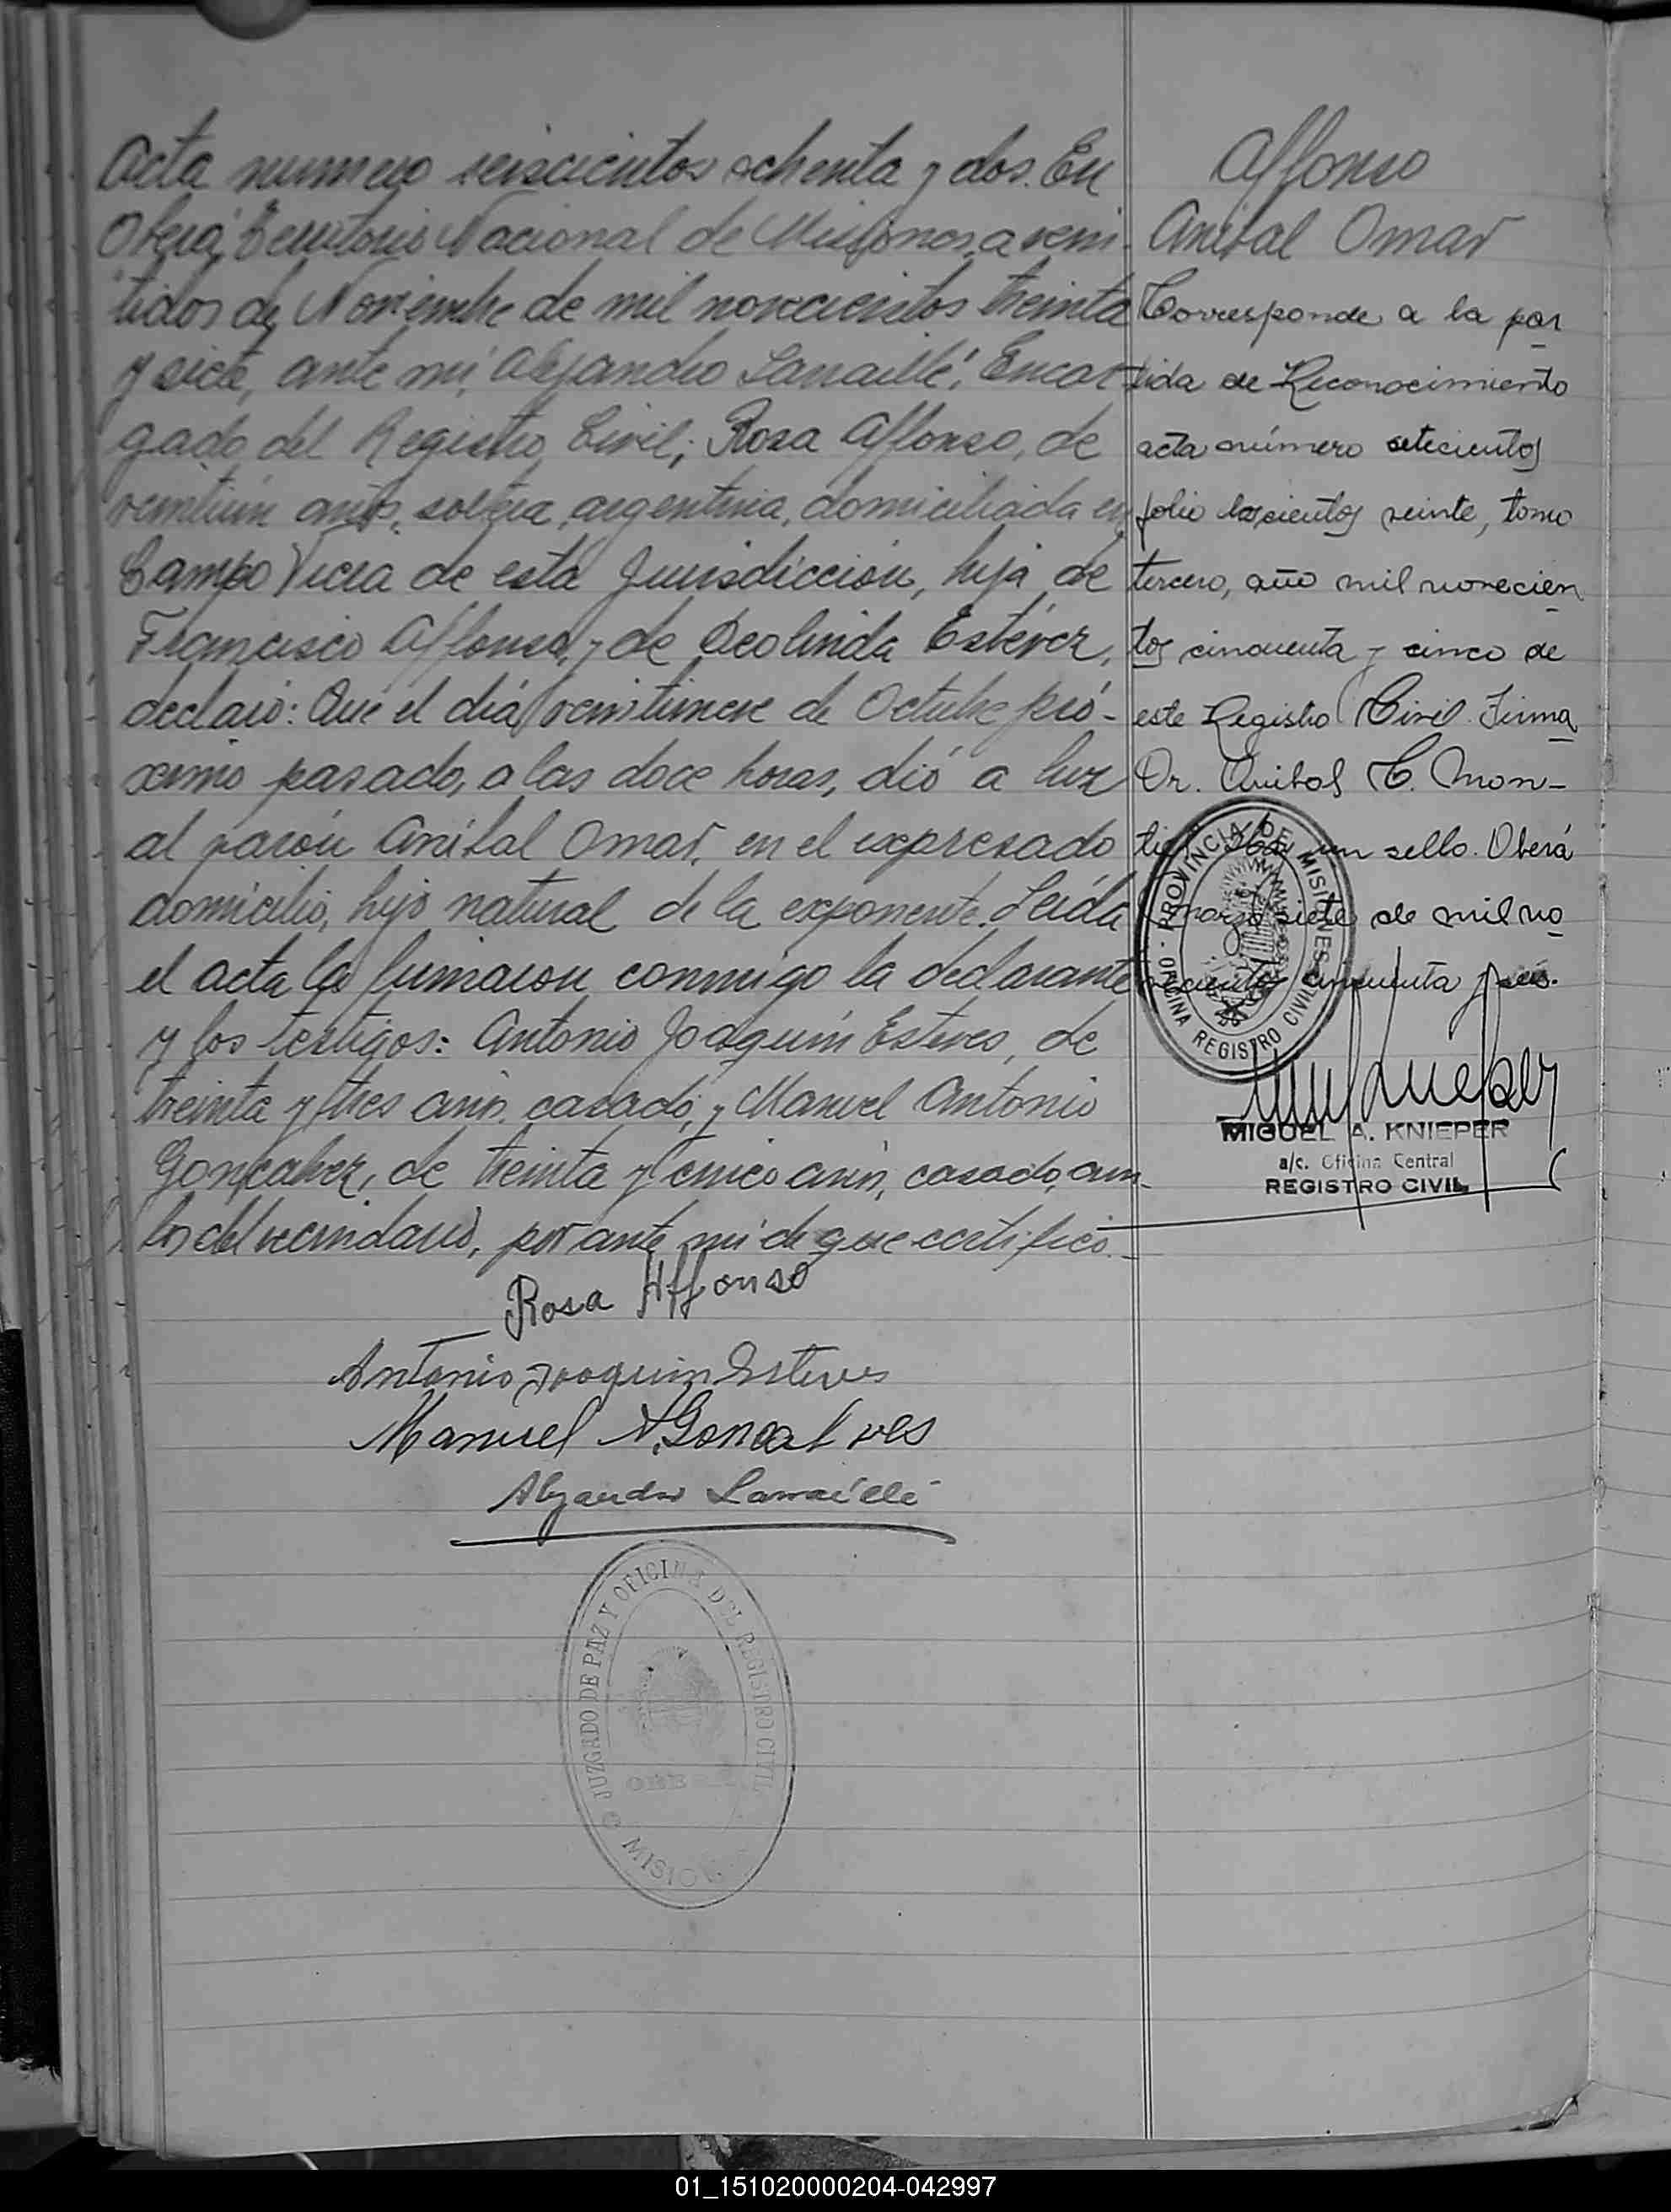 Acta numero seiscientos ochenta y dos. En
Oberá, Territorio Nacional de Misiones, a vein-
tidos de Noviembre de mil novecientos treinta
y siete, ante mi, Alejandro Larraillé, Encar-
gado del Registro Civil; Rosa Affonso, de
veintiún años, soltera, argentina, domiciliada en
Campo Viera de esta Jurisdicción, hija de
Francisco Affonso, y de Deolinda Estévez,
declaró: Que el día veintinueve de Octubre pró-
ximo pasado, a las doce horas, dió a luz
al varón Anibal Omar, en el expresado
domicilio, hijo natural de la exponente. Leída
el acta la firmaron conmigo la declarante
y los testigos: Antonio Joaquín Esteves, de
treinta y tres años, casado, y Manuel Antonio
Gonçalvez, de treinta y cinco años, casado, am-
bos del vecindario, por ante mi de que certifico.-
Rosa Affonso
Antonio Joaquin Esteves
Manuel A. Goncalves
Alejandro Larraillé
JUZGADO DE PAZ Y OFICINA DEL REGISTRO CIVIL
OBE
MISION
Affonso
Anibal Omar
Corresponde a la par
tida de Reconocimiento
acta número setecientos
folio doscientos veinte, tomo
tercero, año mil novecien
tos cincuenta y cinco de
este Registro Civil. Firma
Dr. Anibal C. Mon-
un sello. Oberá
marzo siete de mil no
vecientos cincuenta y seis.
PROVINCIA DE MISIONES
OFICINA REGISTRO CIVIL
MIGUEL A. KNIEPER
a/c. Oficina Central
REGISTRO CIVIL
01_151020000204-042997